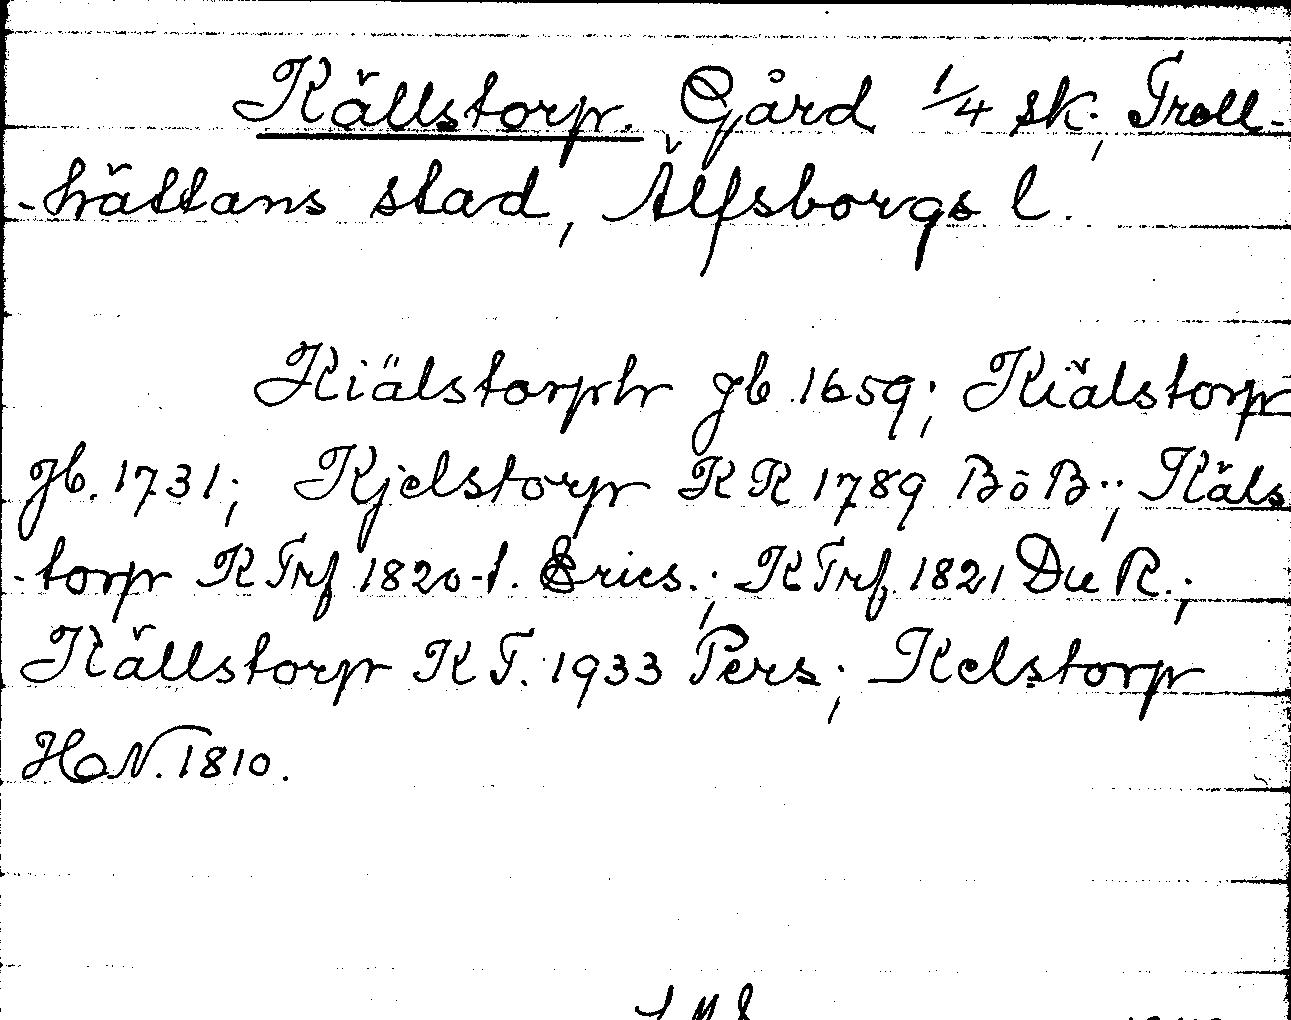 Källstorp. Gård 1/4 sk.; Troll-
-hättans stad, Älfsborgs l.
Kiälstorph Jb. 1659; Kiälstorp
Jb. 1731; Kjelstorp KR 1789 BöB.; Käls
-torp KTrf 1820-t. Erics.; KTrf. 1821 Du R.;
Källstorp KT. 1933 Pers; Kelstorp
HoN. 1810.